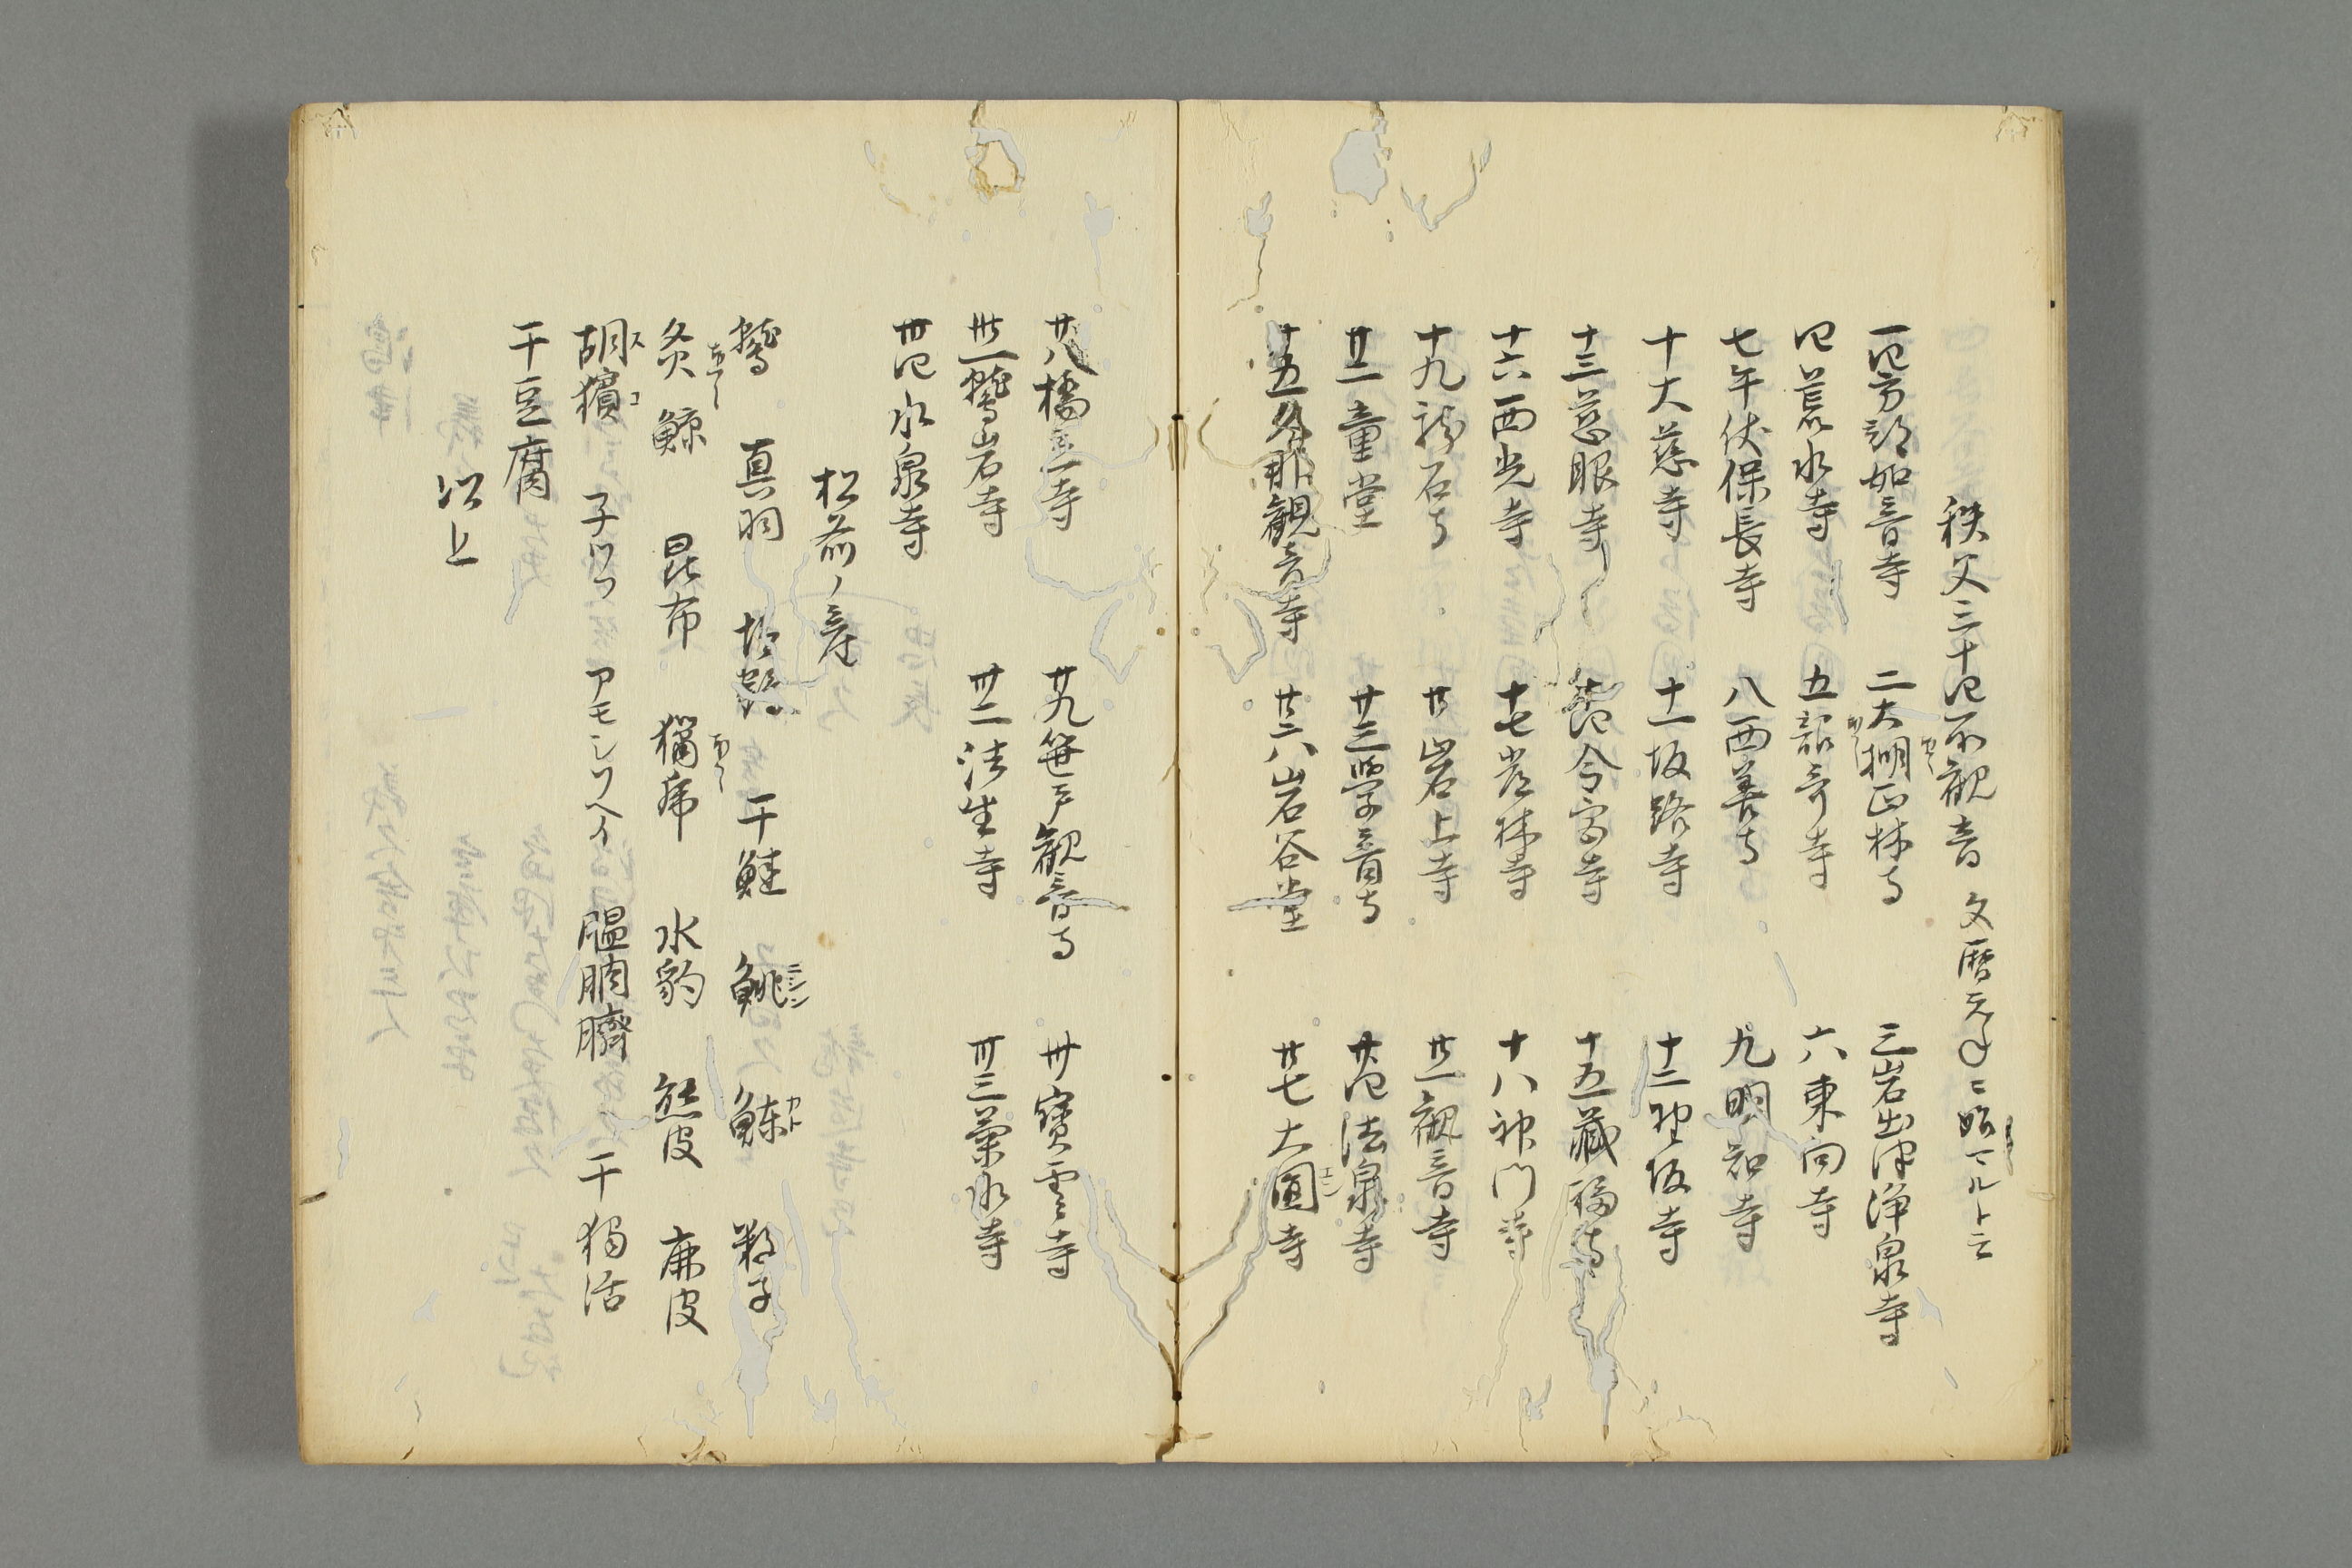 秩父三十四所観音 文暦元年ニ始マルト云
一四方部如音寺 二大棚正林寺 三岩出沢浄泉寺
四荒水寺 五語哥寺 六東向寺
七午伏保長寺 八西善寺 九明知寺
十大慈寺 十一坂路寺 十二野坂寺
十三慈眼寺 十四今宮寺 十五蔵福寺
十六西光寺 十七常林寺 十八神門寺
十九龍石寺 廿岩上寺 廿一観音寺
廿二童堂 廿三学音寺 廿四法泉寺
廿五久那観音寺 廿六八岩谷堂 廿七大圓寺
エン
廿八橋立寺 廿九笹戸観音寺 卅寳雲寺
卅一鷲岩寺 卅二法生寺 卅三菊水寺
卅四水泉寺
松前ノ産
鷲 真羽 塩鶴 干鮭 鮡 鰊 数子
ニシン カト
炙鯨 昆布 獺虎 水豹 熊皮 鹿皮
胡獱 子ツフ アモシツヘイ 膃肭臍 干独活
干豆腐
以上